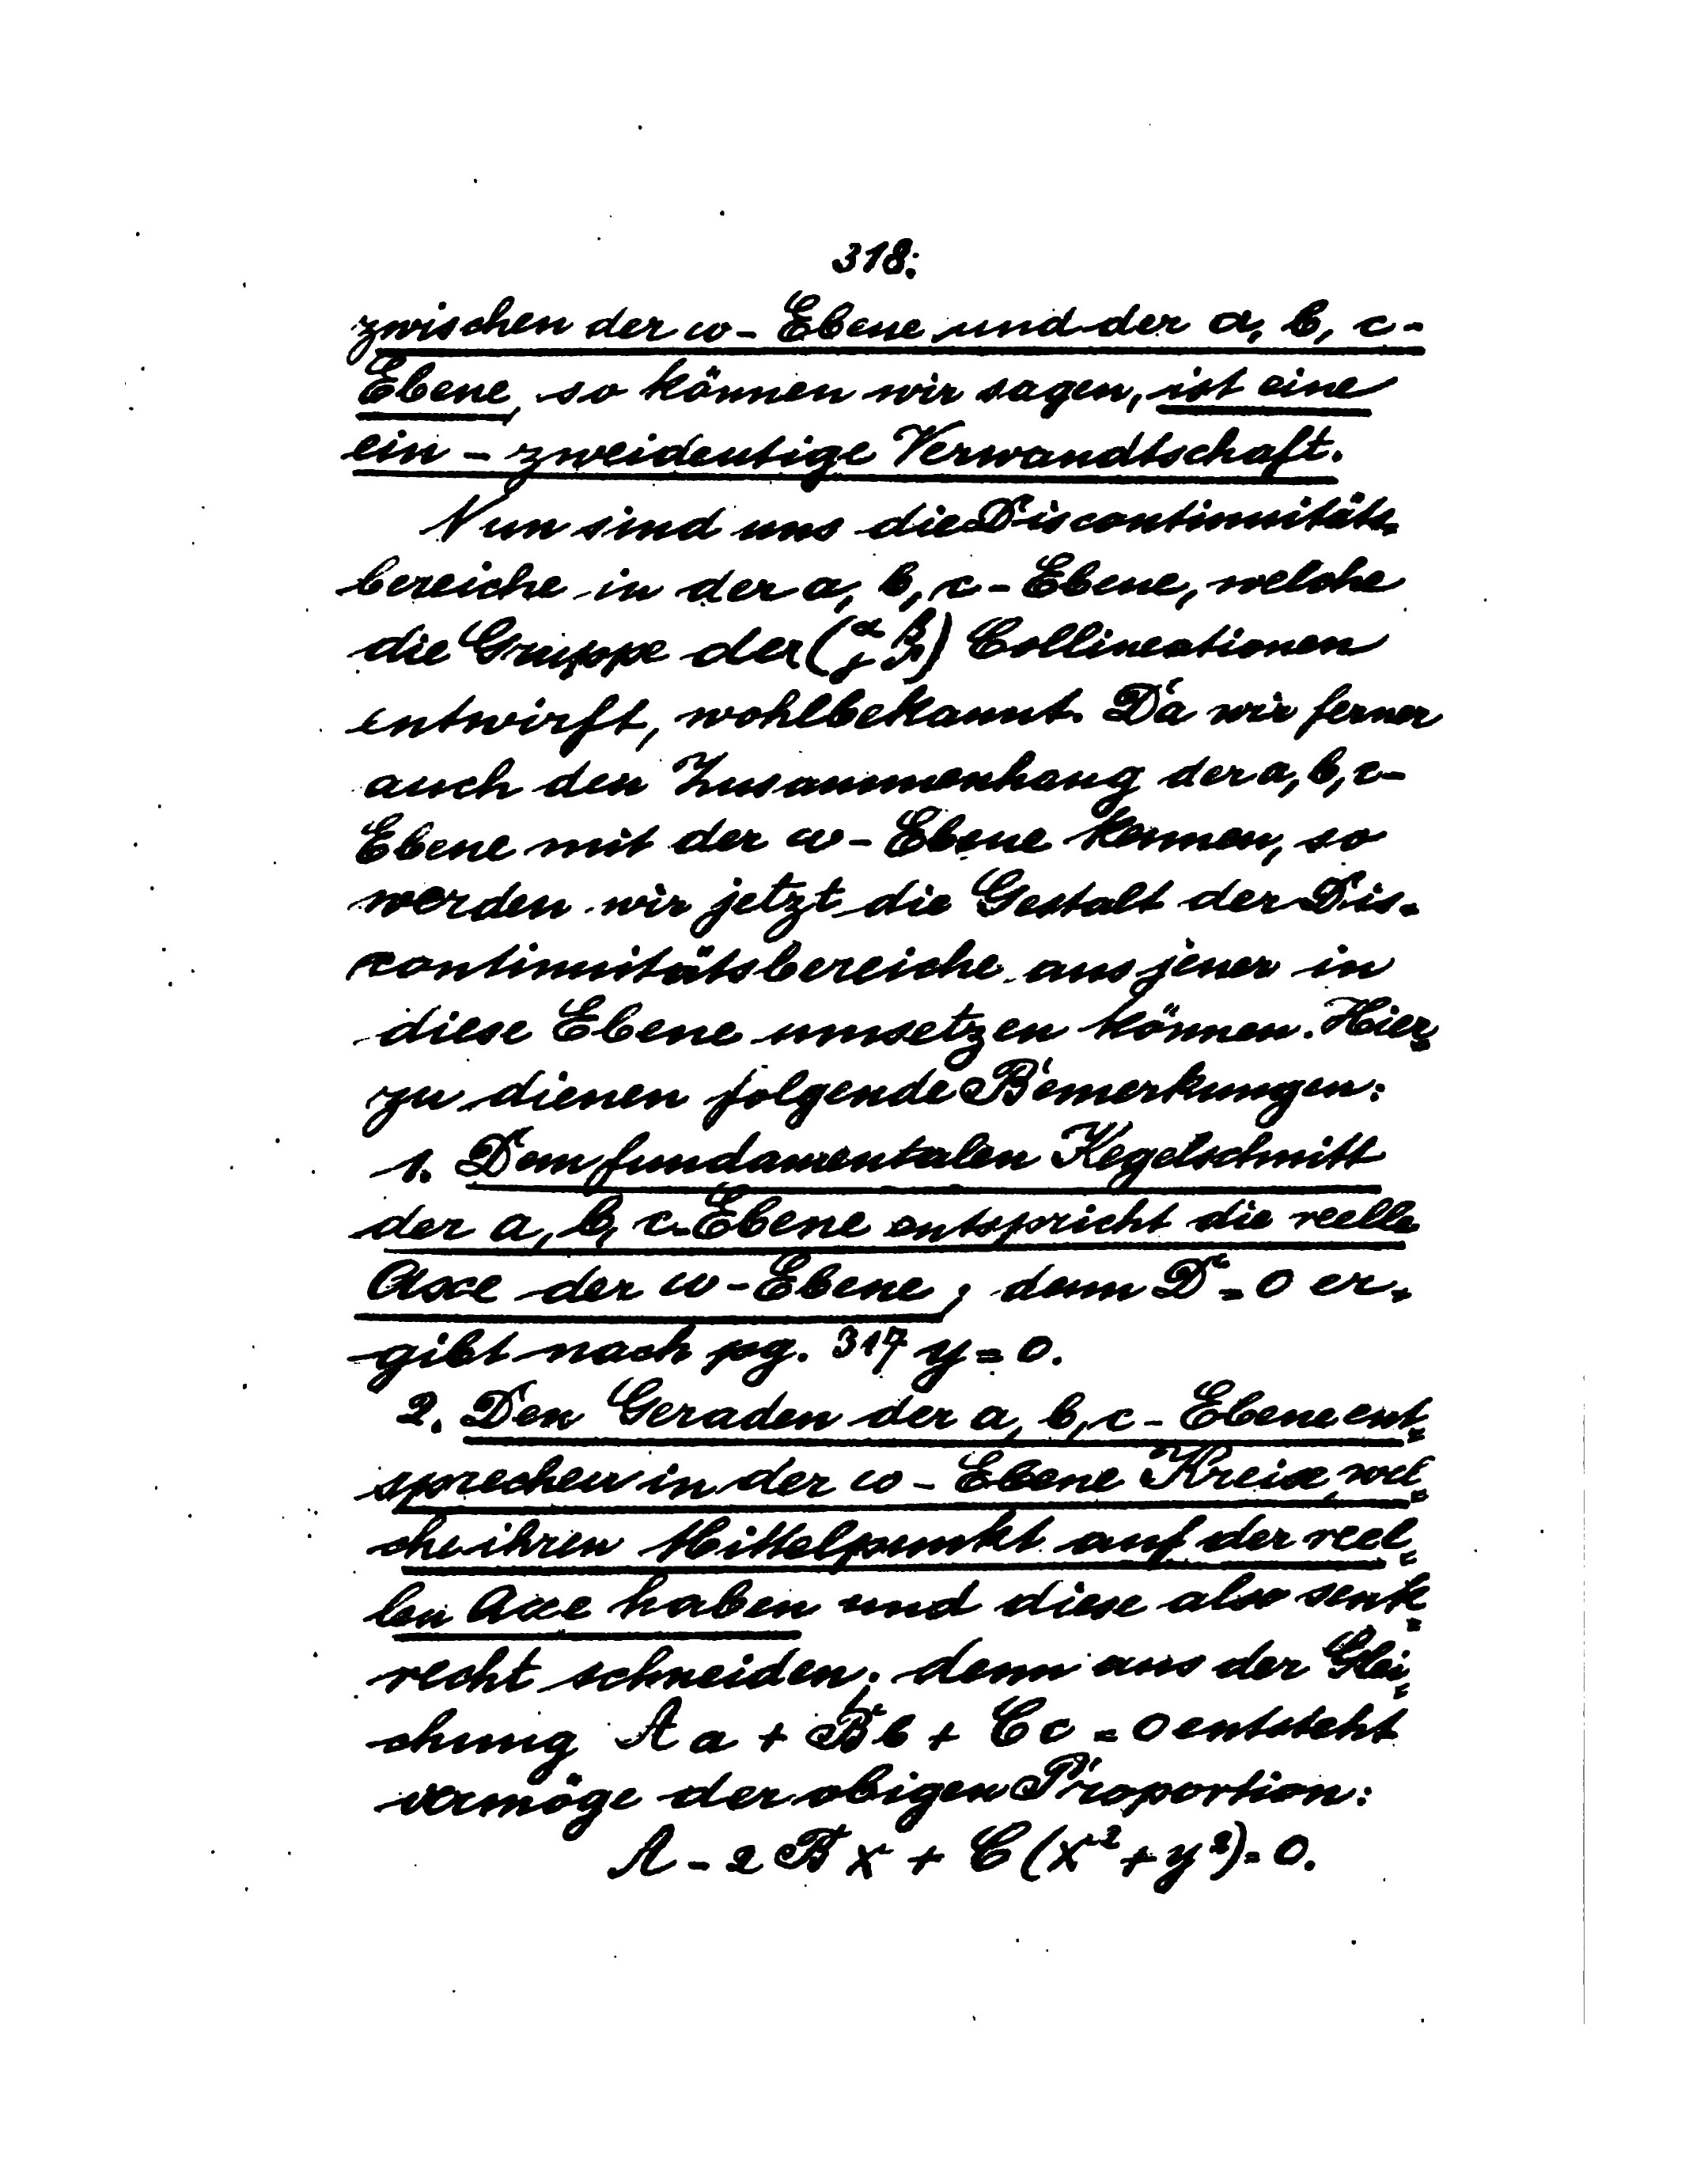 318.
zwischen der ω - Ebene und der a, b, c -
Ebene, so können wir sagen, ist eine
ein - zweideutige Verwandtschaft.
Nun sind uns die Discontinuitäts=
bereiche in der a, b, c - Ebene, welche
die Gruppe der (α β γ δ) Collineationen
entwirft, wohlbekannt. Da wir ferner
auch den Zusammenhang der a, b, c -
Ebene mit der ω - Ebene kennen, so
werden wir jetzt die Gestalt der Dis=
continuitätsbereiche aus jener in
diese Ebene umsetzen können. Hier=
zu dienen folgende Bemerkungen:
1. Dem fundamentalen Kegelschnitt
der a, b, c - Ebene entspricht die reelle
Axe der ω - Ebene; denn D = 0 er=
gibt nach pg. 317 y = 0.
2. Den Geraden der a, b, c - Ebene ent=
sprechen in der ω - Ebene Kreise, wel=
che ihren Mittelpunkt auf der reel=
len Axe haben und diese also senk=
recht schneiden; denn aus der Glei=
chung A a + B b + C c = 0 entsteht
vermöge der obigen Proportion:
A - 2 B x + C (x² + y²) = 0.